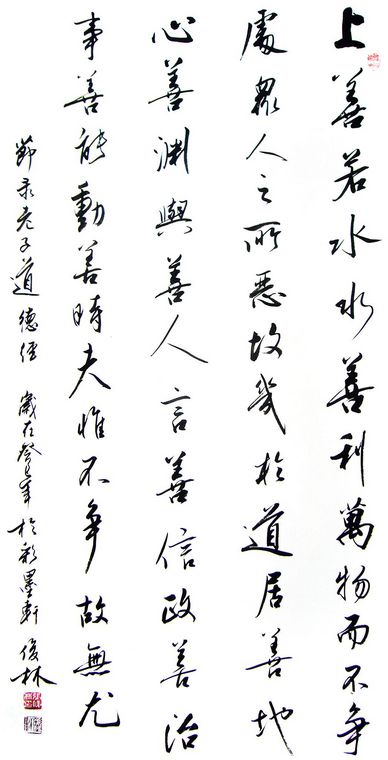 上善若水水善利萬物而不争
處衆人之所惡故幾於道居善地
心善渊與善人言善信政善治
事善能動善時夫惟不争故無尤
節录老子道德經 歲在癸巳年於彩墨軒 俊林